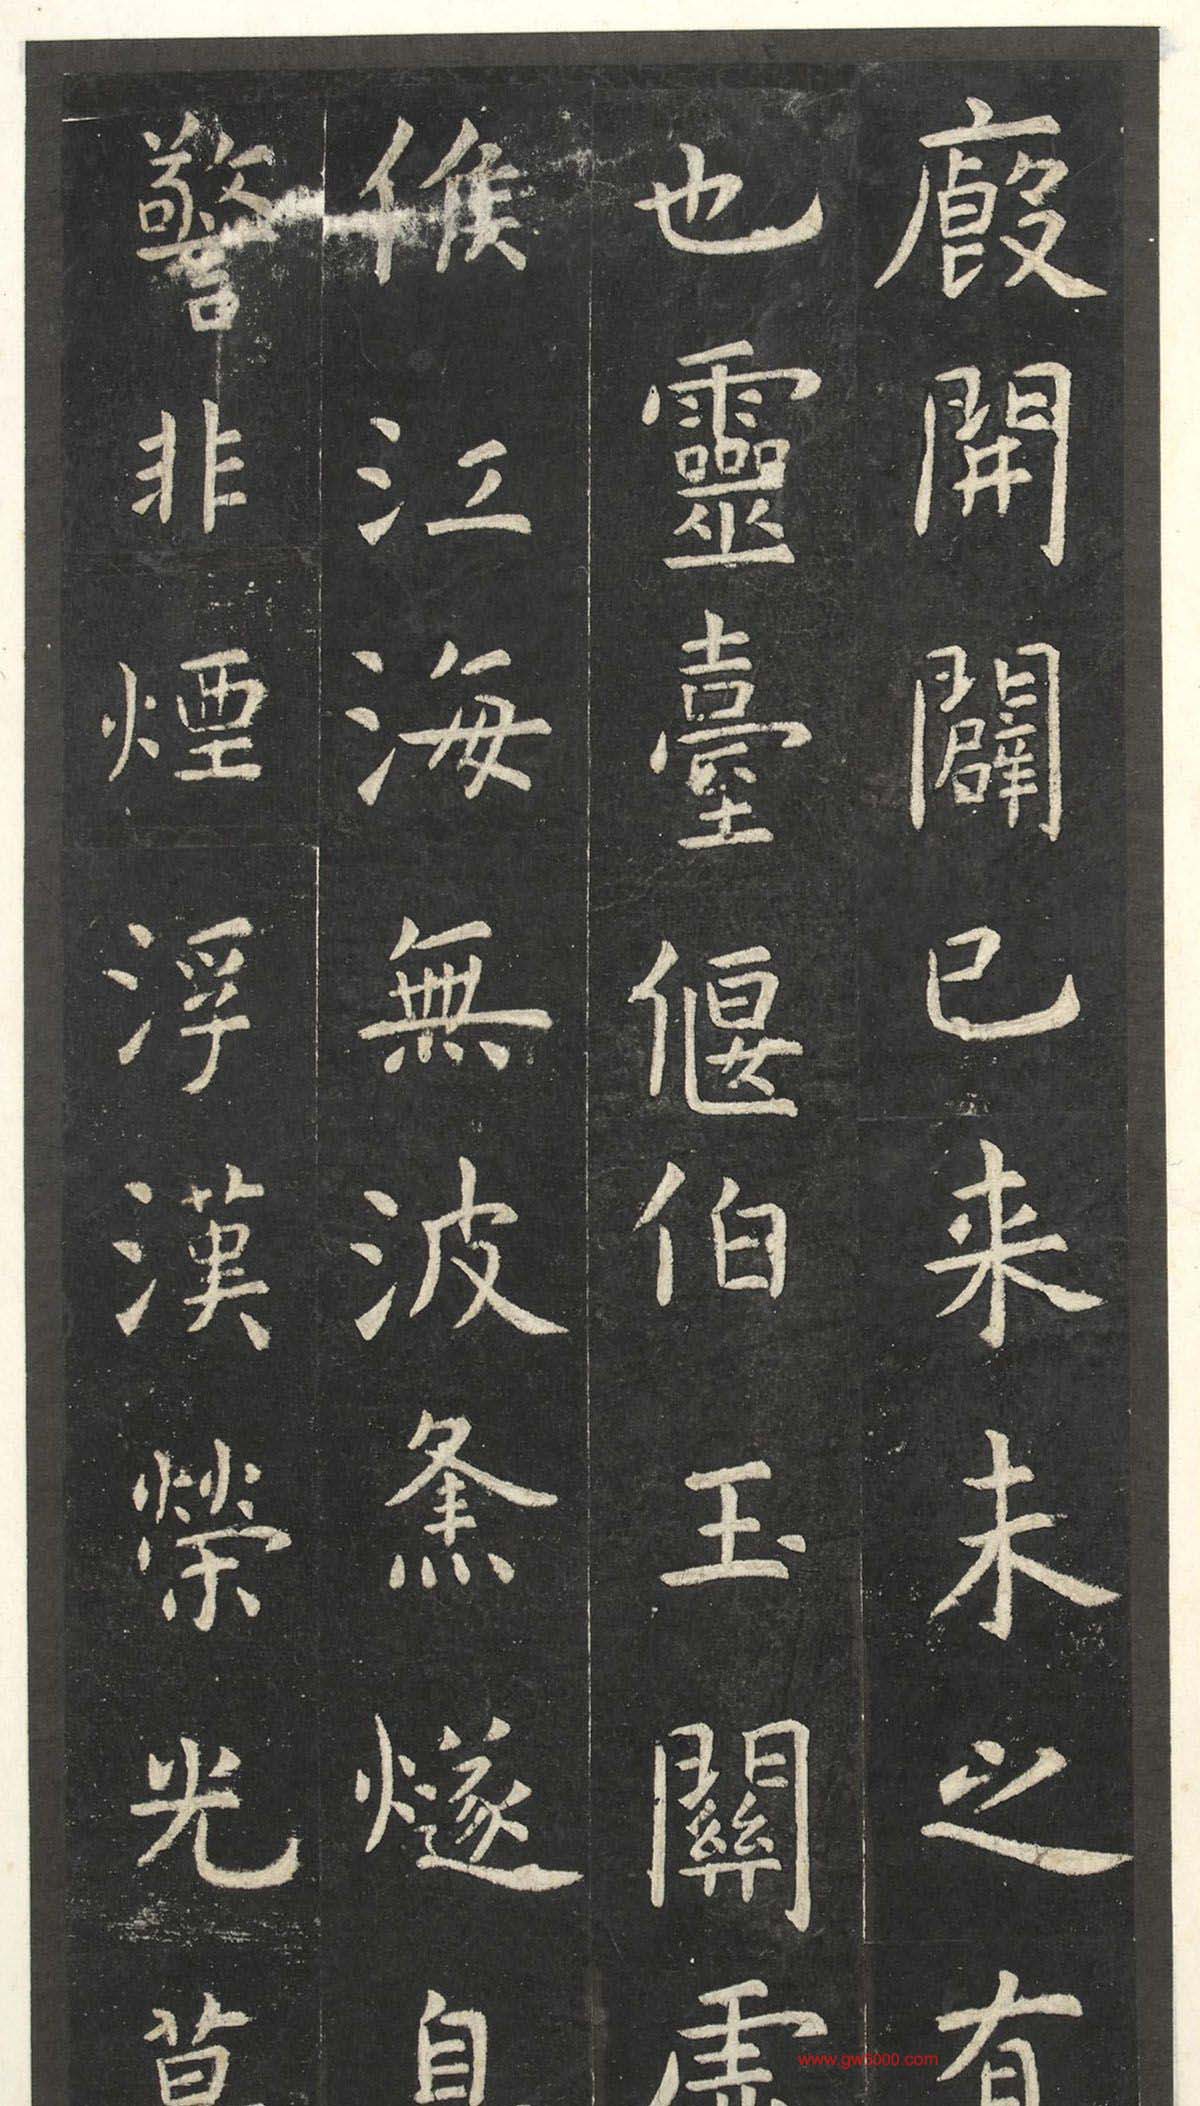 廏開闢已来未之有
也靈臺偃伯玉關虛
候江海無波㷭燧
警非煙浮漢榮光
www.gw6000.com